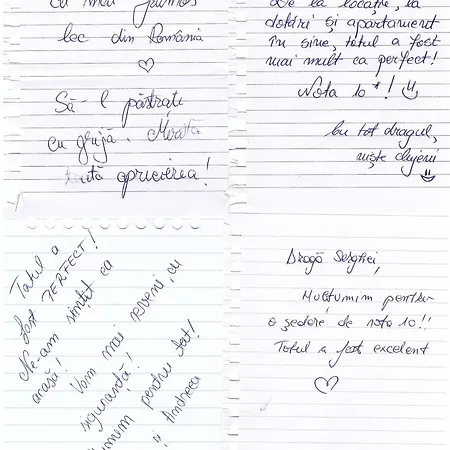 Cu mai frumos
loc din România
Să-l păstrați
cu grijă. Merită
toată aprecierea!
De la locație, la
dotări și apartament
în sine, totul a fost
mai mult ca perfect!
Nota 10*!
cu tot dragul,
niște clujeni
Totul a
fost PERFECT!
Ne-am simțit ca
acasă!
Vom mai reveni, cu
siguranță!
pentru tot!
Andreea
Dragă Serghei,
Mulțumim pentru
o ședere de nota 10!!
Totul a fost excelent